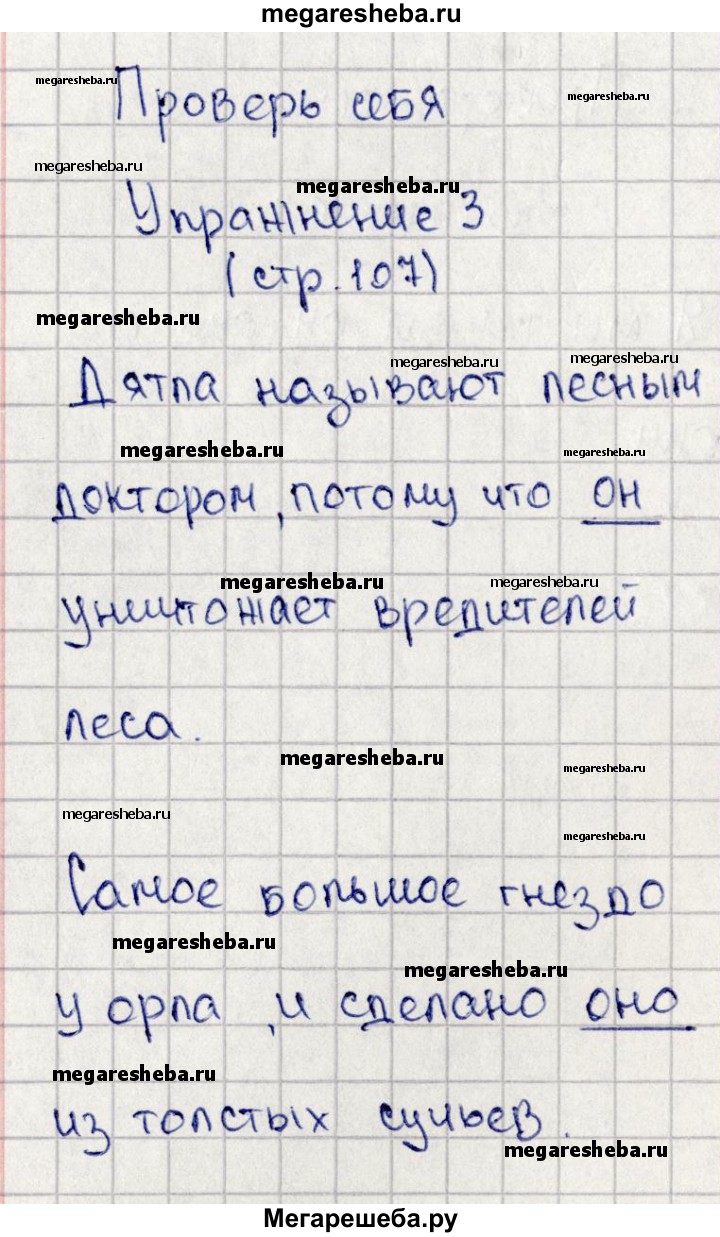 megaresheba.ru
megaresheba.ru
Проверь себя
megaresheba.ru
megaresheba.ru
megaresheba.ru
Упражнение 3
(стр. 107)
megaresheba.ru
megaresheba.ru
megaresheba.ru
Дятла называют лесным
megaresheba.ru
megaresheba.ru
доктором, потому что он
megaresheba.ru
megaresheba.ru
уничтожает вредителей
леса.
megaresheba.ru
megaresheba.ru
megaresheba.ru
megaresheba.ru
Самое большое гнездо
megaresheba.ru
megaresheba.ru
у орла, и сделано оно
megaresheba.ru
из толстых сучьев.
megaresheba.ru
Мегарешеба.ру